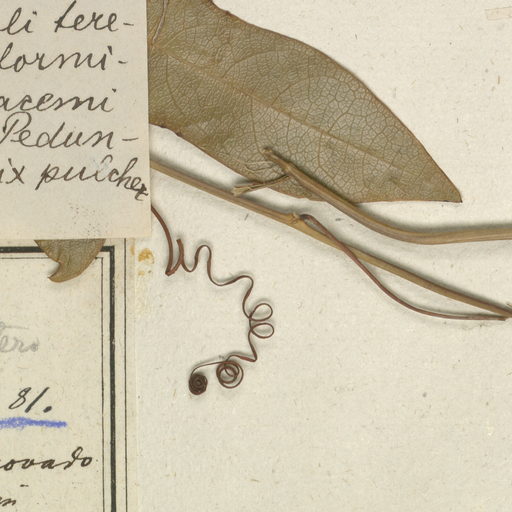 li tere-
formi-
acemi
Pedun-
ix pulcher
tero
81.
ovado